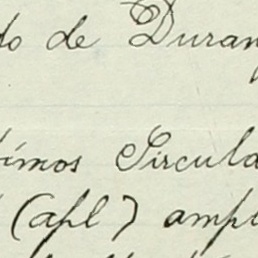 do de Duran
timos Circula
(apl) ampl